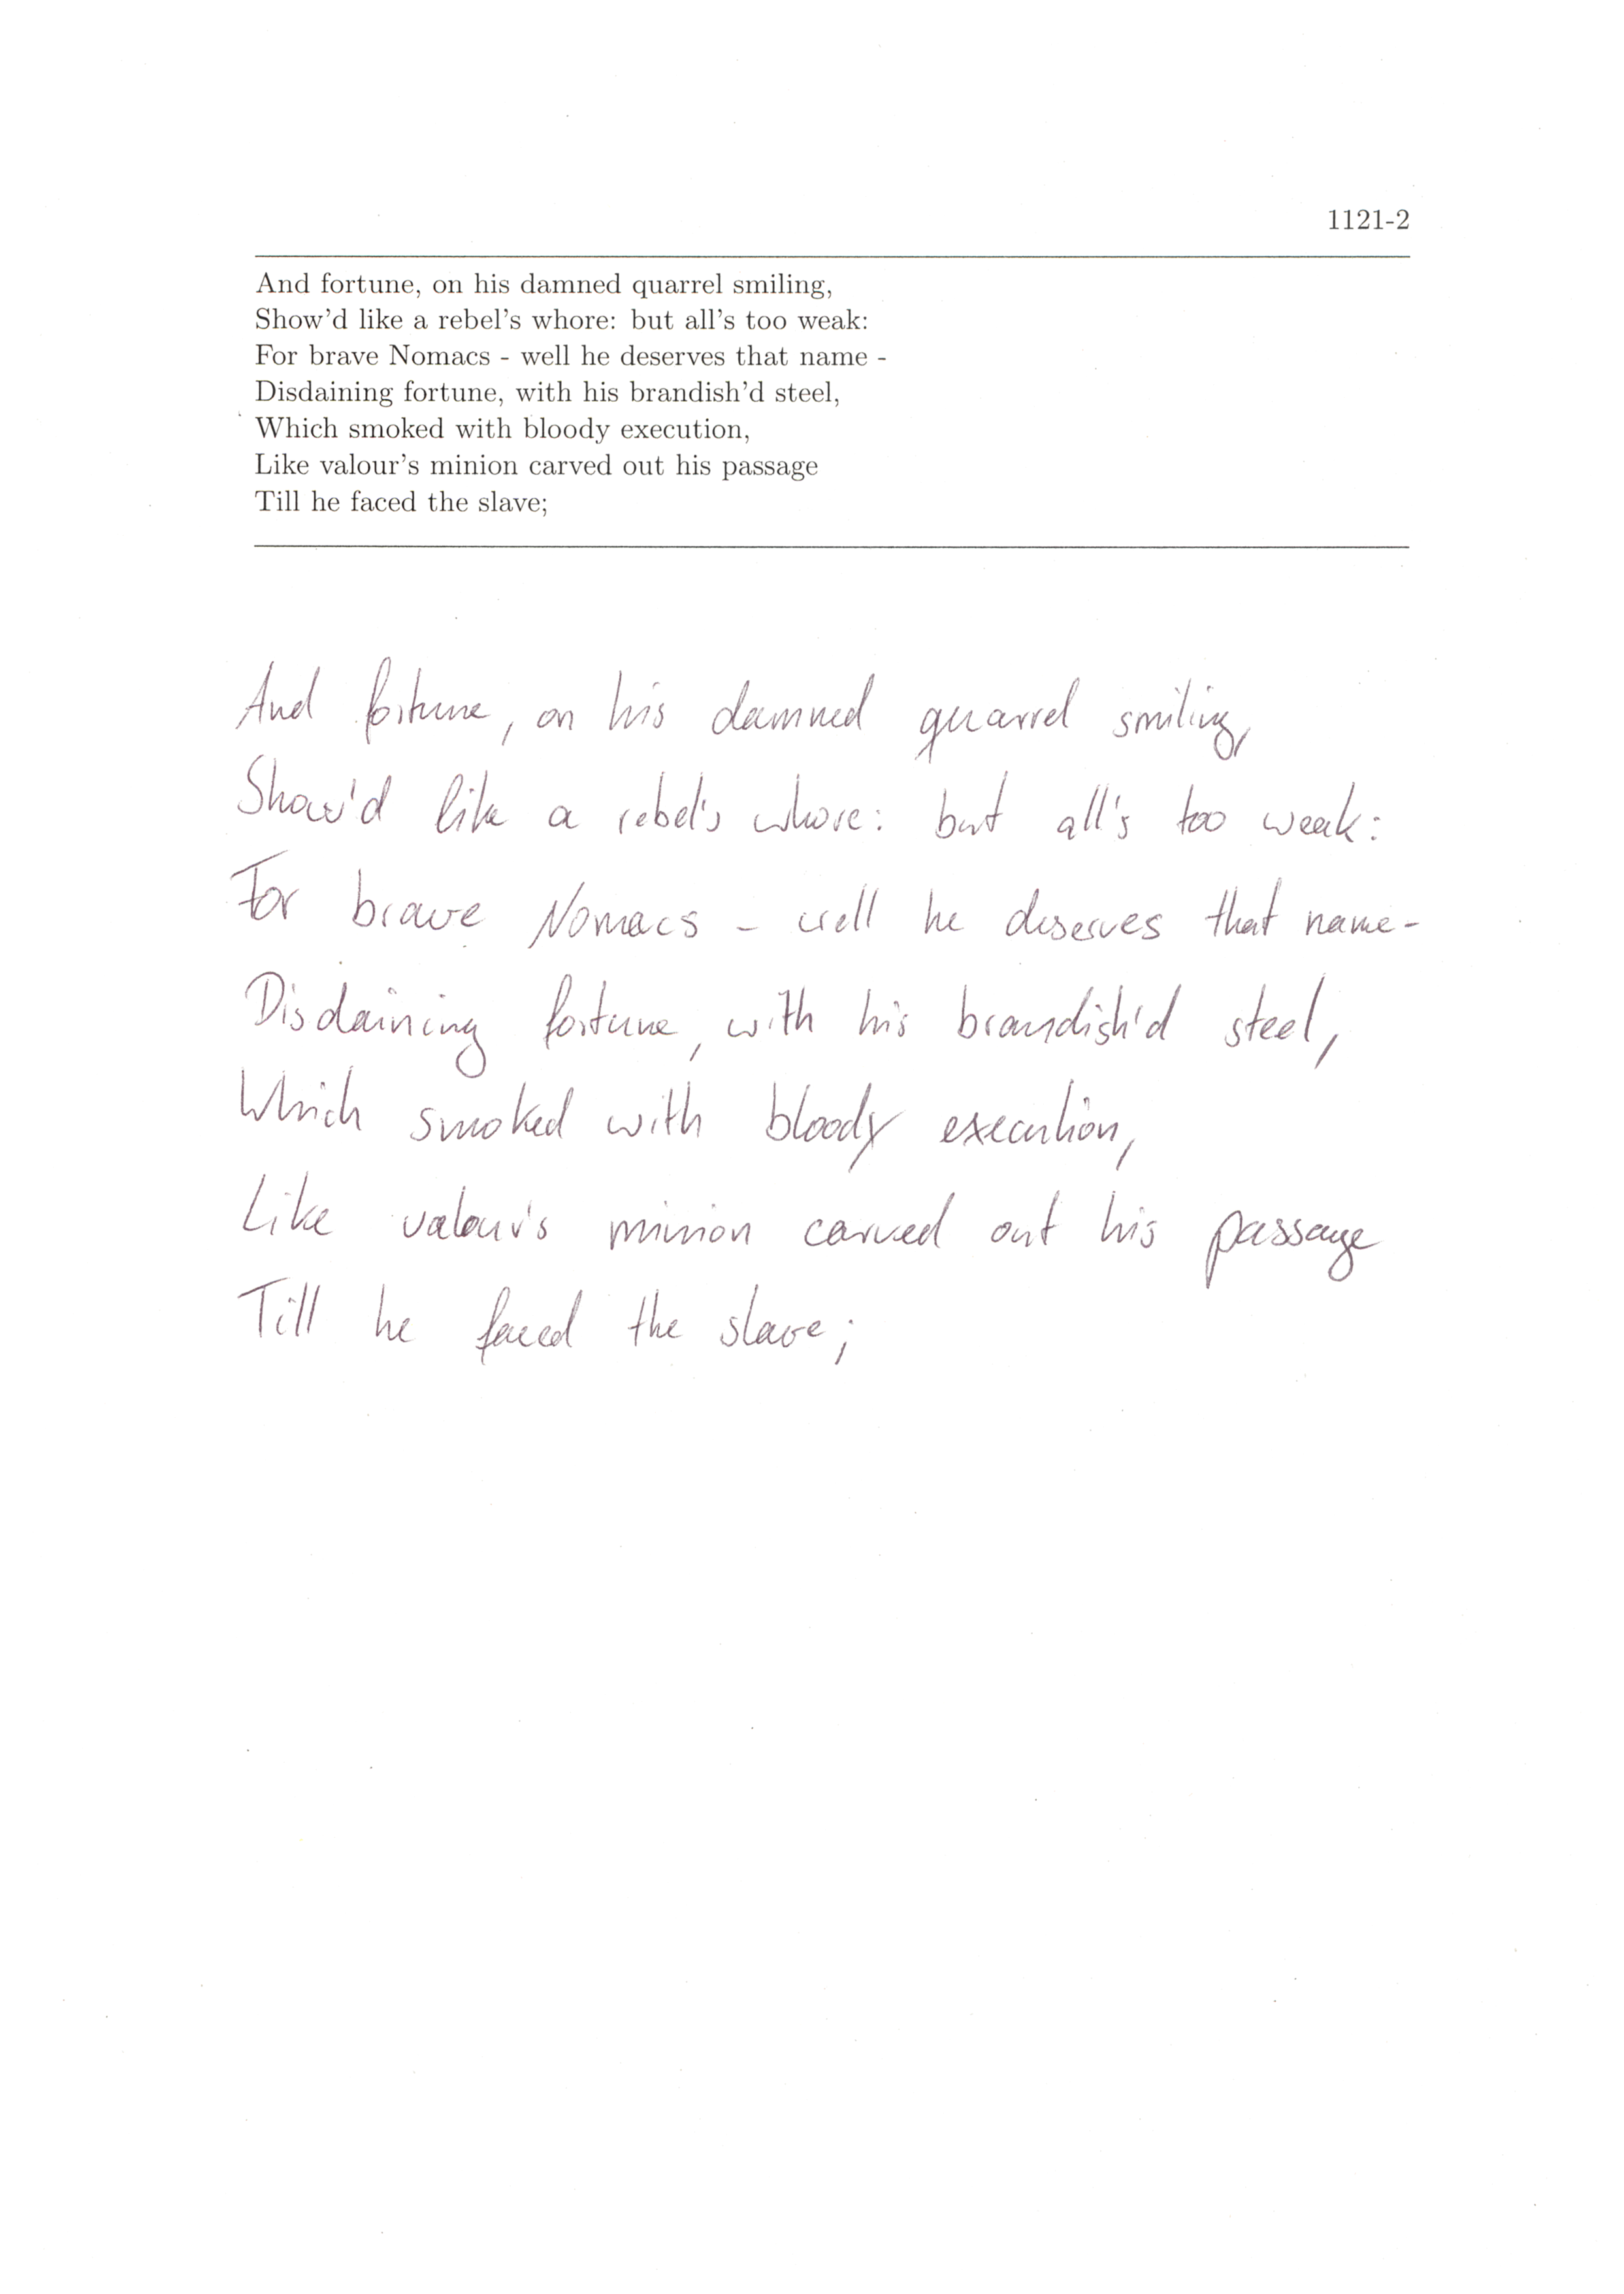 1121-2
And fortune, on his damned quarrel smiling,
Show'd like a rebel's whore: but all's too weak:
For brave Nomacs - well he deserves that name -
Disdaining fortune, with his brandish'd steel,
Which smoked with bloody execution,
Like valour's minion carved out his passage
Till he faced the slave;
And fortune, on his damned quarrel smiling,
Show'd like a rebel's whore: but all's too weak:
For brave Nomacs - well he deserves that name -
Disdaining fortune, with his brandish'd steel,
Which smoked with bloody execution,
Like valour's minion carved out his passage
Till he faced the slave;